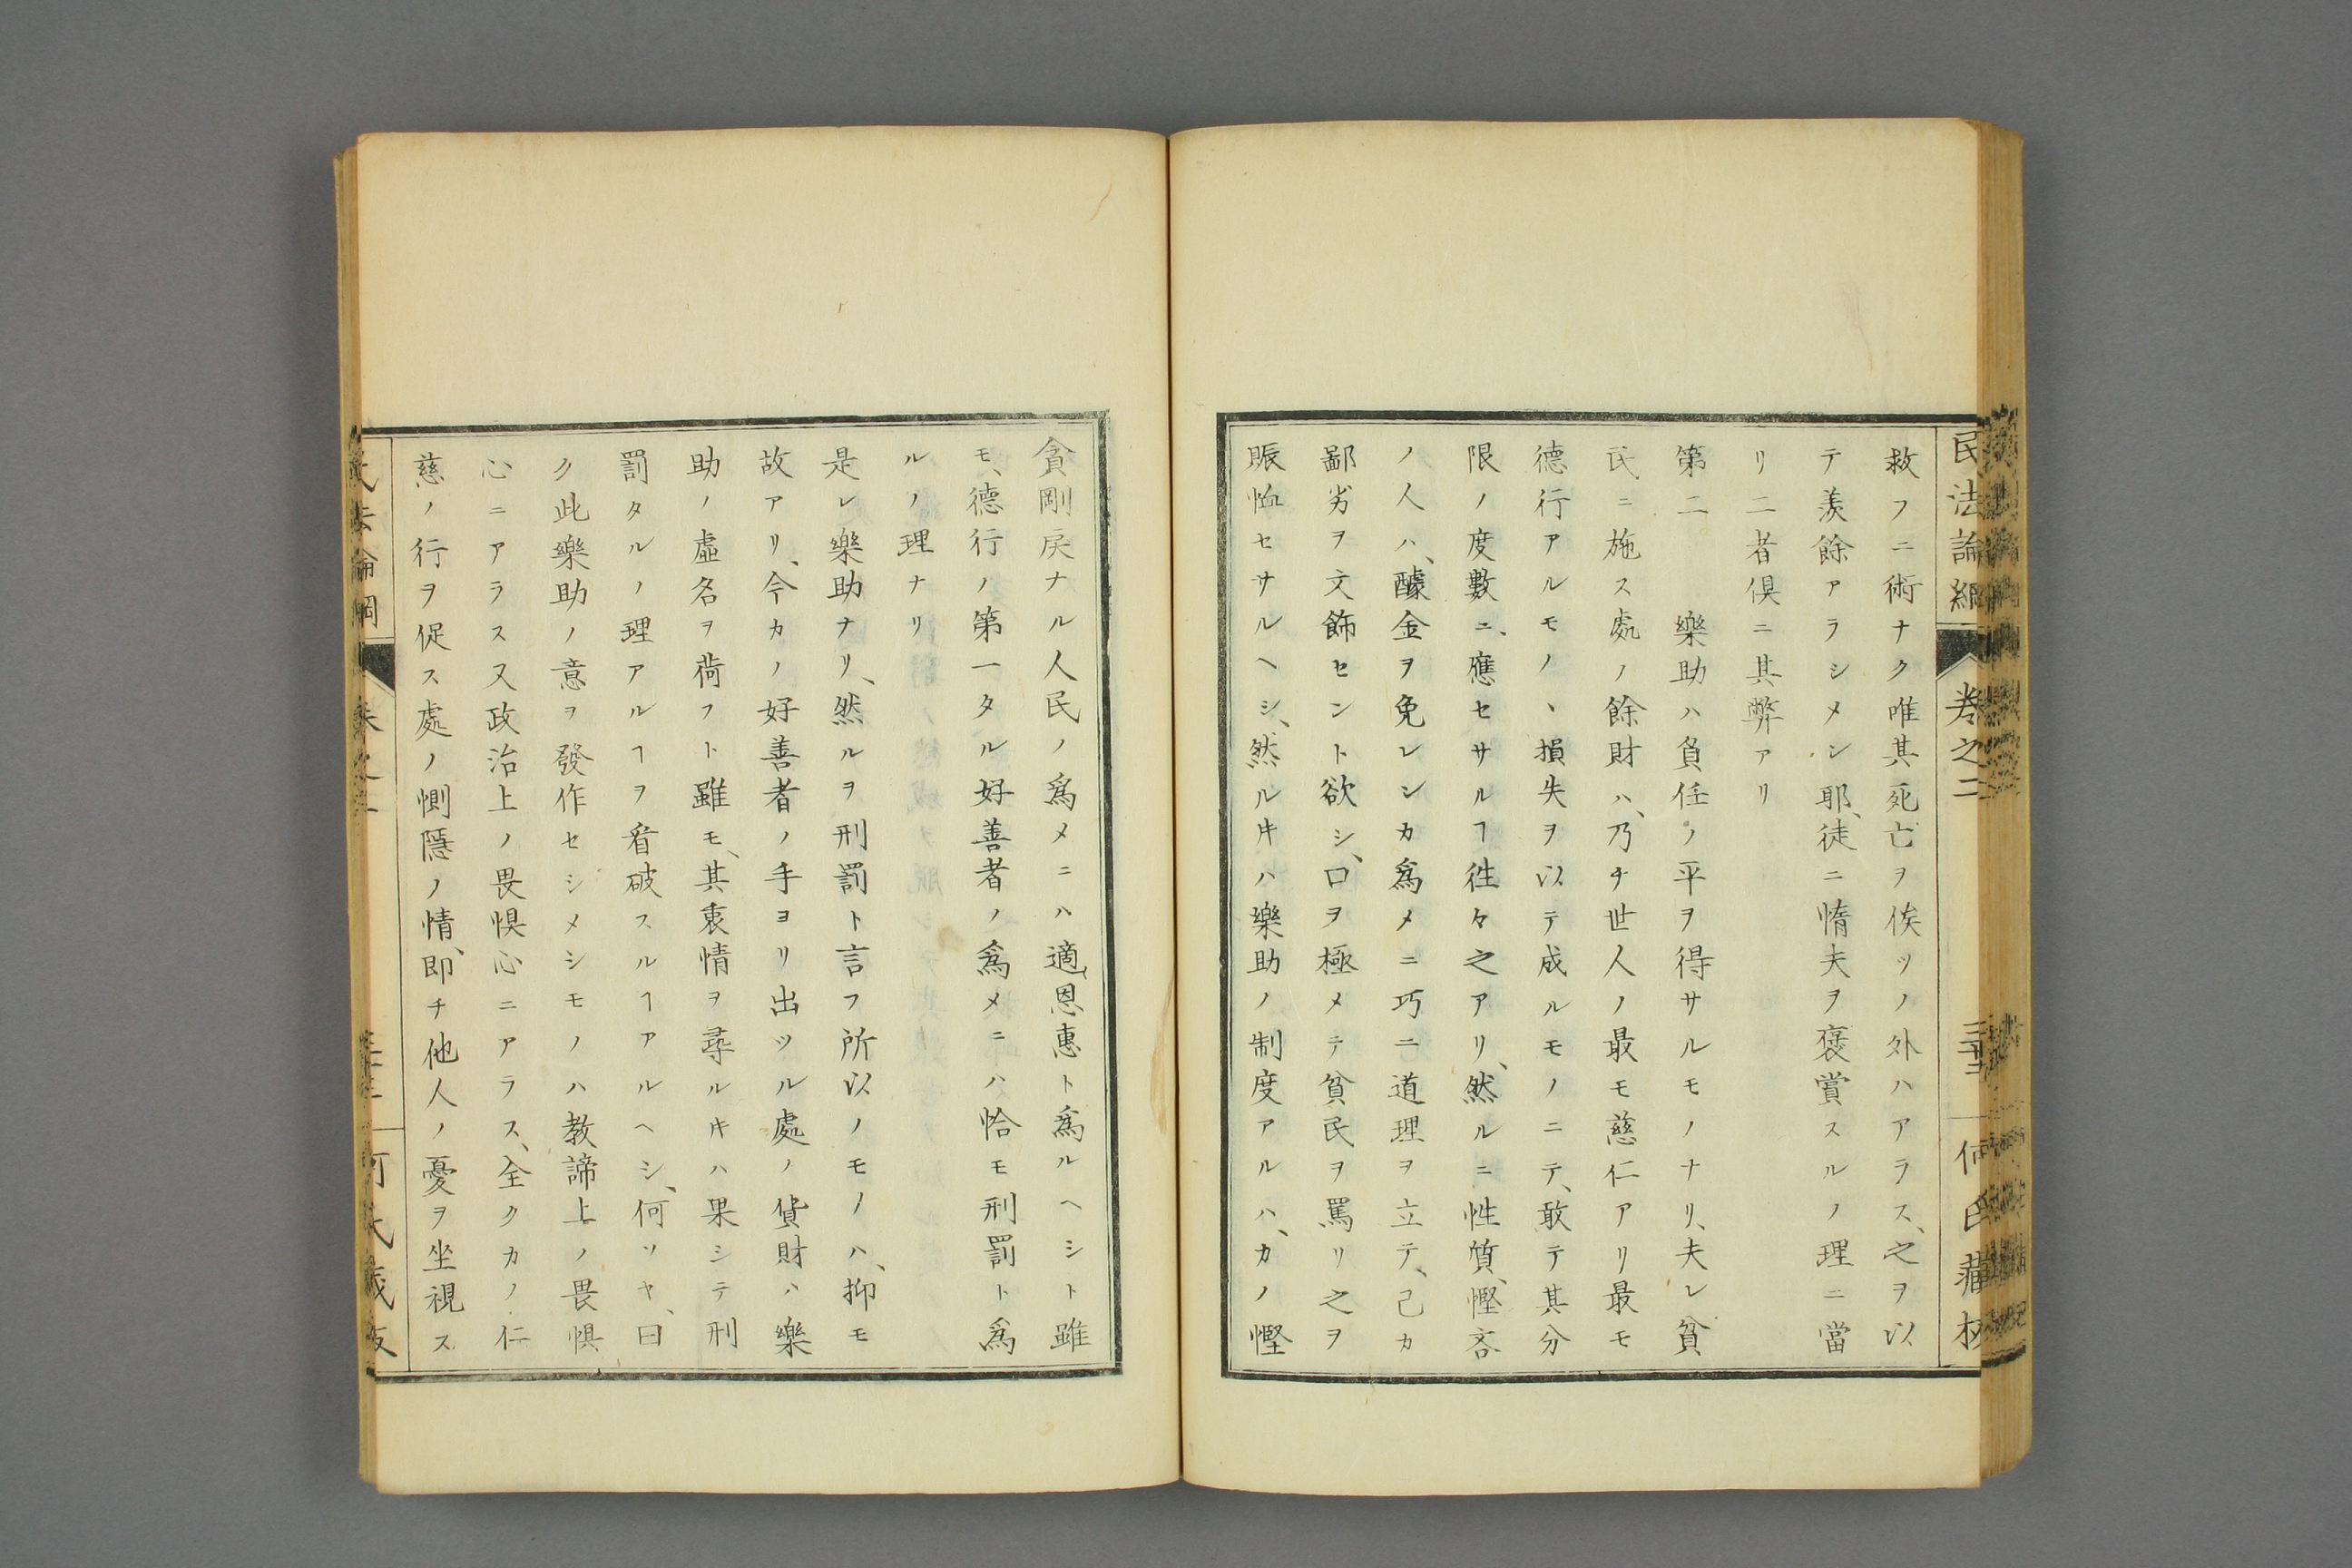 民法論綱 卷之二 三十二 何氏藏板
救フニ術ナク唯其死亡ヲ俟ツノ外ハアラス、之ヲ以
テ羨餘アラシメン耶、徒ニ惰夫ヲ褒賞スルノ理ニ當
リ二者倶ニ其弊アリ
第二　樂助ハ負任ノ平ヲ得サルモノナリ、夫レ貧
民ニ施ス處ノ餘財ハ、乃チ世人ノ最モ慈仁アリ最モ
德行アルモノヽ損失ヲ以テ成ルモノニテ、敢テ其分
限ノ度數ニ、應セサルヿ徃々之アリ、然ルニ性質、慳吝
ノ人ハ、醵金ヲ免レンカ爲メニ巧ニ道理ヲ立テ、己カ
鄙劣ヲ文飾セント欲シ、口ヲ極メテ貧民ヲ罵リ之ヲ
賑恤セサルヘシ、然ル𪜈ハ樂助ノ制度アルハ、カノ慳
貪剛戾ナル人民ノ爲メニハ適、恩惠ト爲ルヘシト雖
モ、德行ノ第一タル好善者ノ爲メニハ恰モ刑罰ト爲
ルノ理ナリ
是レ樂助ナリ、然ルヲ刑罰ト言フ所以ノモノハ、抑モ
故アリ、今カノ好善者ノ手ヨリ出ツル處ノ貨財ハ樂
助ノ虛名ヲ荷フト雖モ、其衷情ヲ尋ルキハ果シテ刑
罰タルノ理アルヿヲ看破スルヿアルヘシ、何ソヤ、曰
ク此樂助ノ意ヲ發作セシメシモノハ教諦上ノ畏懼
心ニアラス又政治上ノ畏懼心ニアラス、全クカノ仁
慈ノ行ヲ促ス處ノ惻隱ノ情、即チ他人ノ憂ヲ坐視ス